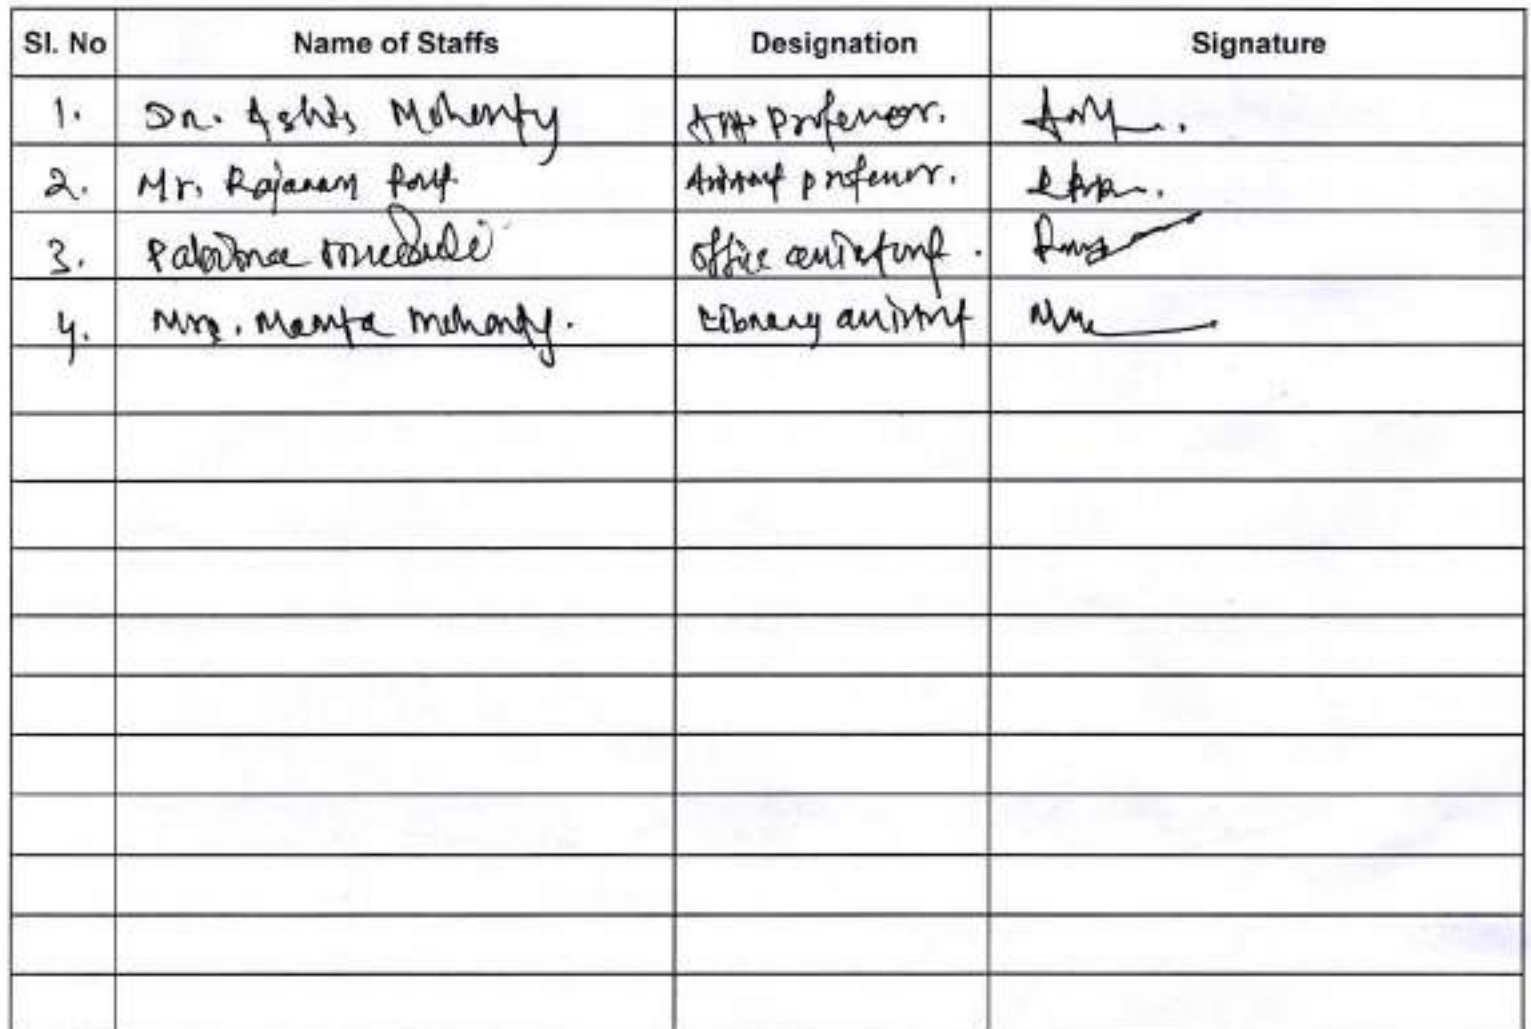 Sl. No Name of Staffs Designation Signature
1. Dr. Ashis Mohanty Asst. Professor.
2. Mr. Rajaram Assistant professor.
3. office assistant.
4. Mrs. Mamta Mohanty. Library assistant